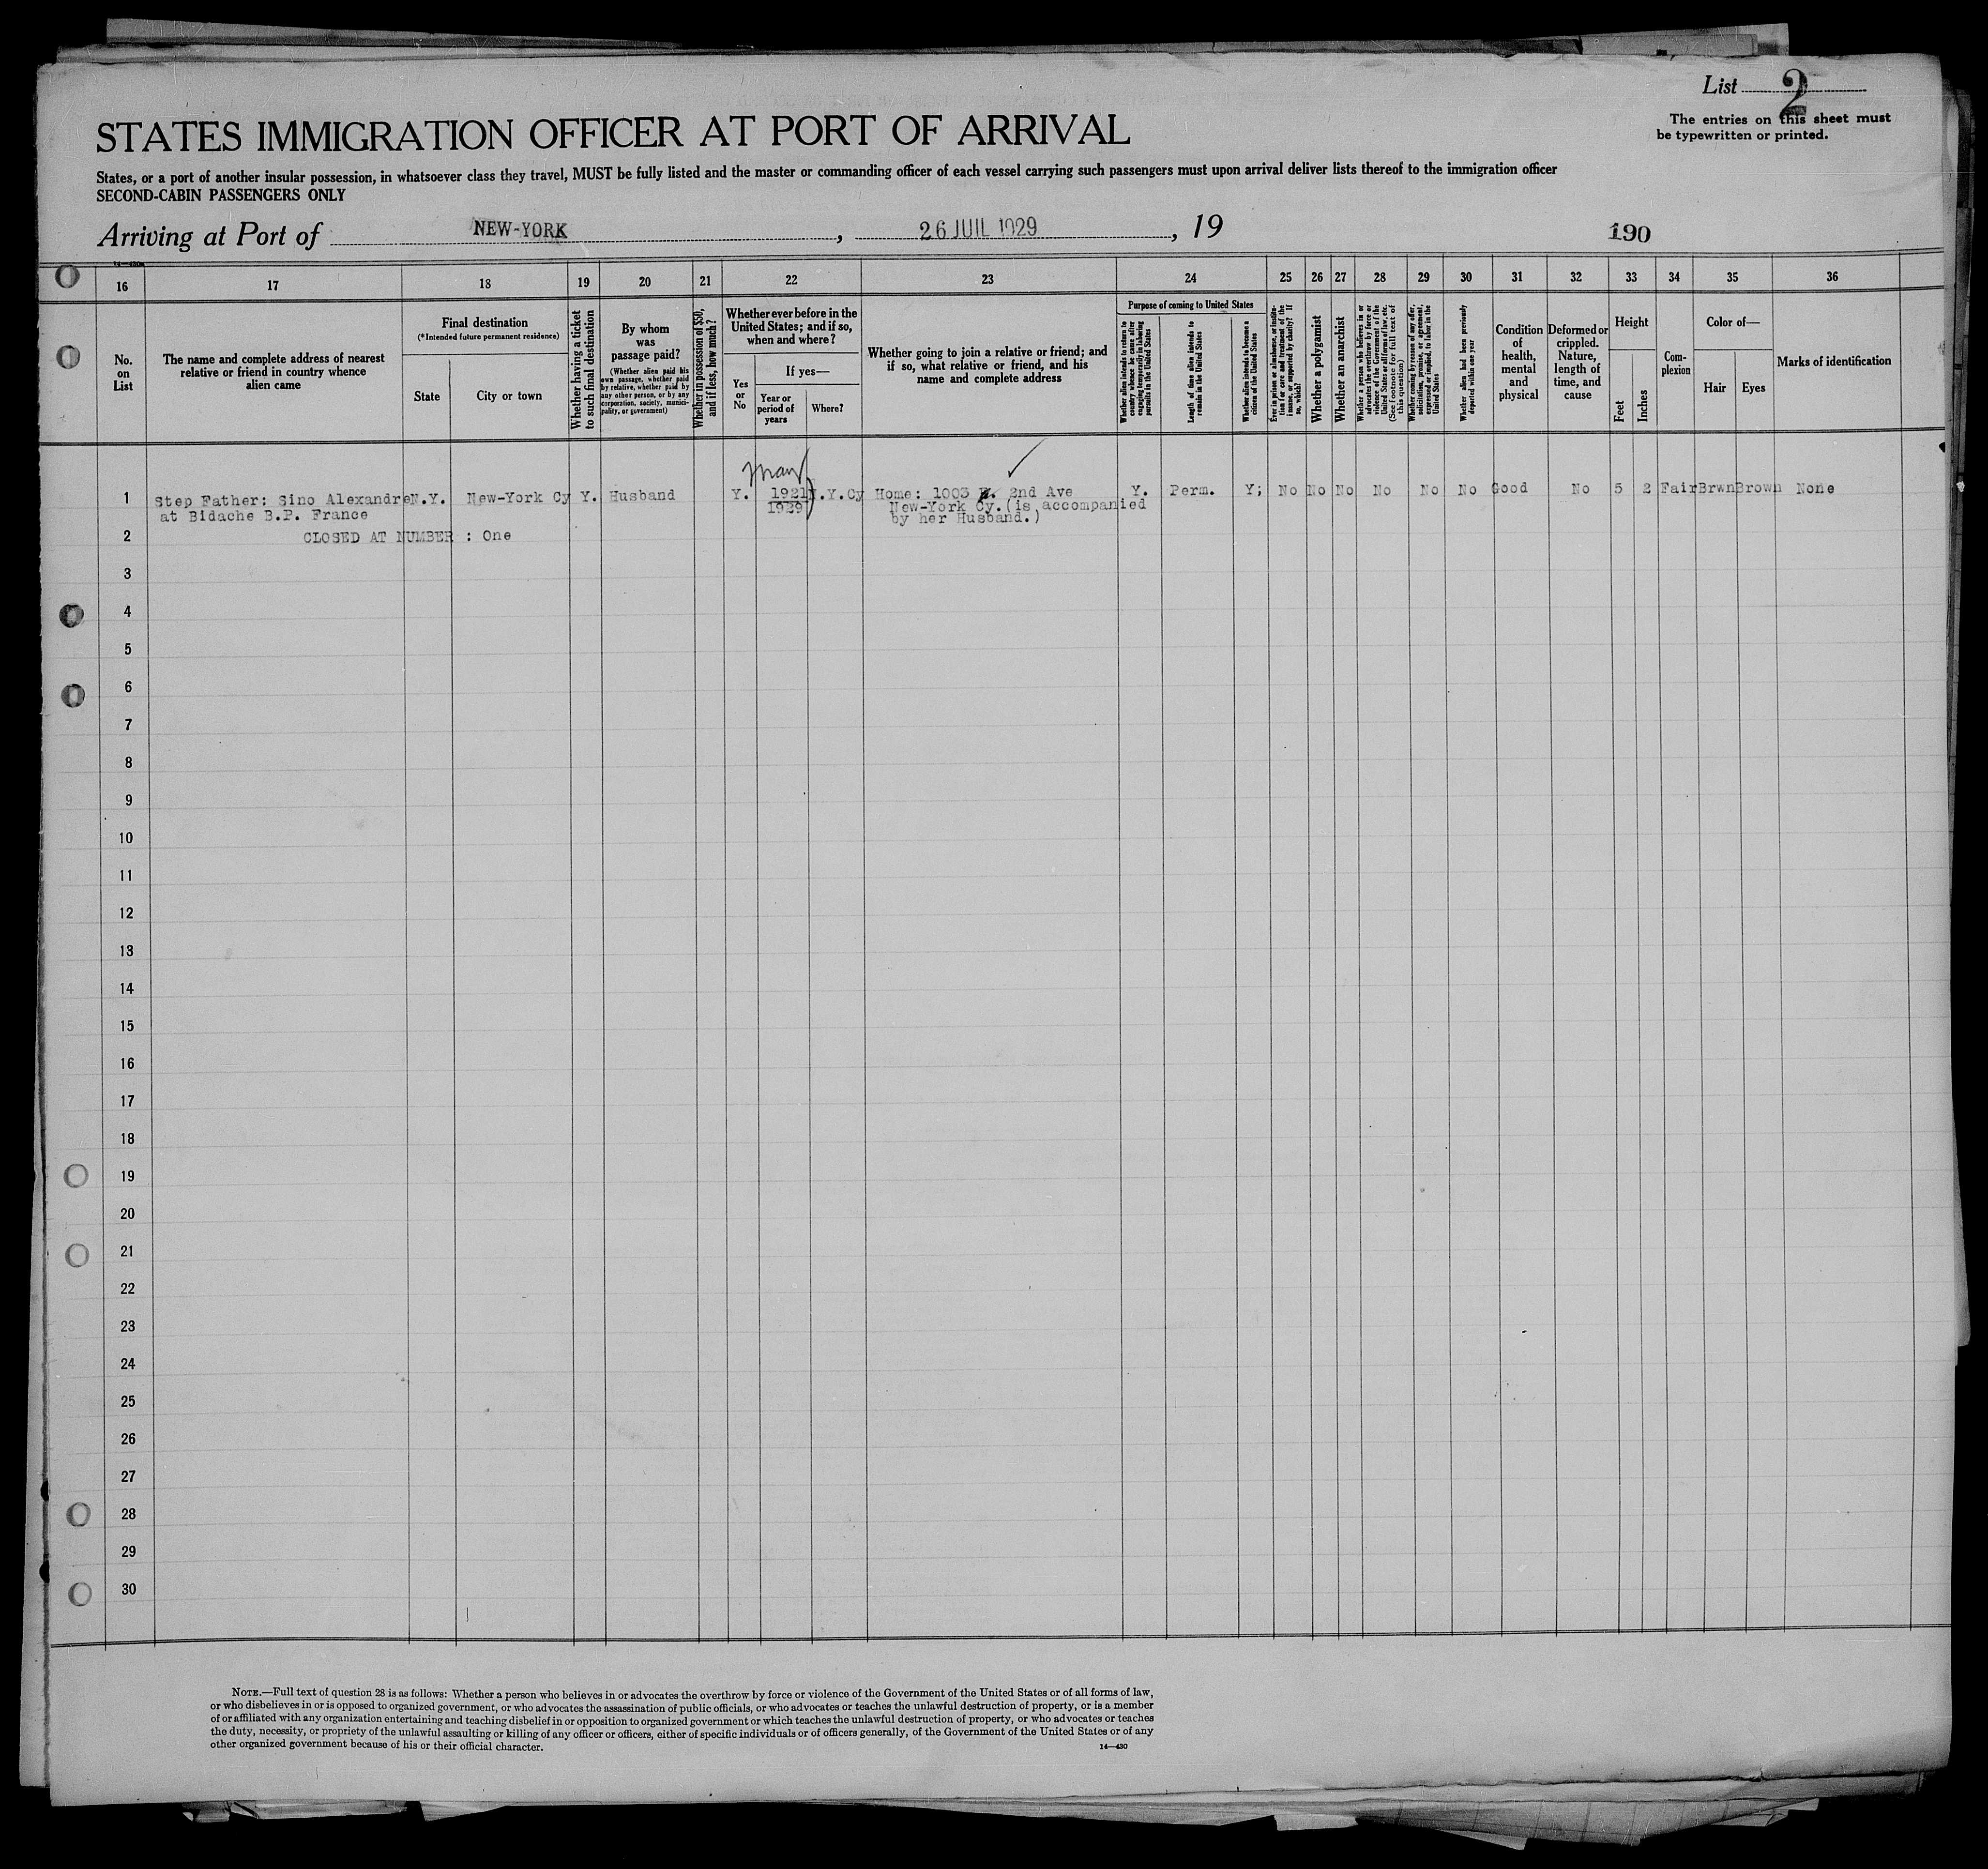 List 2
The entries on this sheet must
be typewritten or printed.
STATES IMMIGRATION OFFICER AT PORT OF ARRIVAL
States, or a port of another insular possession, in whatsoever class they travel, MUST be fully listed and the master or commanding officer of each vessel carrying such passengers must upon arrival deliver lists thereof to the immigration officer
SECOND-CABIN PASSENGERS ONLY
Arriving at Port of NEW-YORK, 26 JUIL 1929, 19
190
14—430
16 17 18 19 20 21 22 23 24 25 26 27 28 29 30 31 32 33 34 35 36
No.
on
List
The name and complete address of nearest
relative or friend in country whence
alien came
Final destination
(*Intended future permanent residence)
State
City or town
Whether having a ticket
to such final destination
By whom
was
passage paid?
(Whether alien paid his
own passage, whether paid
by relative, whether paid by
any other person, or by any
corporation, society, munici-
pality, or government)
Whether in possession of $50,
and if less, how much?
Whether ever before in the
United States; and if so,
when and where?
Yes
or
No
If yes—
Year or
period of
years
Where?
Whether going to join a relative or friend; and
if so, what relative or friend, and his
name and complete address
Purpose of coming to United States
Whether alien intends to return to
country whence he came after
engaging temporarily in laboring
pursuits in the United States
Length of time alien intends to
remain in the United States
Whether alien intends to become a
citizen of the United States
Ever in prison or almshouse, or institu-
tion for care and treatment of the
insane, or supported by charity? If
so, which?
Whether a polygamist
Whether an anarchist
Whether a person who believes in or
advocates the overthrow by force or
violence of the Government of the
United States or all forms of law, etc.
(See footnote for full text of
this question)
Whether coming by reason of any offer,
solicitation, promise, or agreement,
expressed or implied, to labor in the
United States
Whether alien had been previously
deported within one year
Condition
of
health,
mental
and
physical
Deformed or
crippled.
Nature,
length of
time, and
cause
Height
Feet
Inches
Com-
plexion
Color of—
Hair
Eyes
Marks of identification
May
1 Step Father: Sino Alexandre N.Y. New-York Cy Y. Husband Y. 1921 N.Y.Cy Home: 1003 2nd Ave Y. Perm. Y; No No No No No No Good No 5 2 Fair Brwn Brown None
at Bidache B.P. France 1929 New-York Cy.(is accompanied
by her Husband.)
2 CLOSED AT NUMBER : One
3
4
5
6
7
8
9
10
11
12
13
14
15
16
17
18
19
20
21
22
23
24
25
26
27
28
29
30
NOTE.—Full text of question 28 is as follows: Whether a person who believes in or advocates the overthrow by force or violence of the Government of the United States or of all forms of law,
or who disbelieves in or is opposed to organized government, or who advocates the assassination of public officials, or who advocates or teaches the unlawful destruction of property, or is a member
of or affiliated with any organization entertaining and teaching disbelief in or opposition to organized government or which teaches the unlawful destruction of property, or who advocates or teaches
the duty, necessity, or propriety of the unlawful assaulting or killing of any officer or officers, either of specific individuals or of officers generally, of the Government of the United States or of any
other organized government because of his or their official character.
14—430